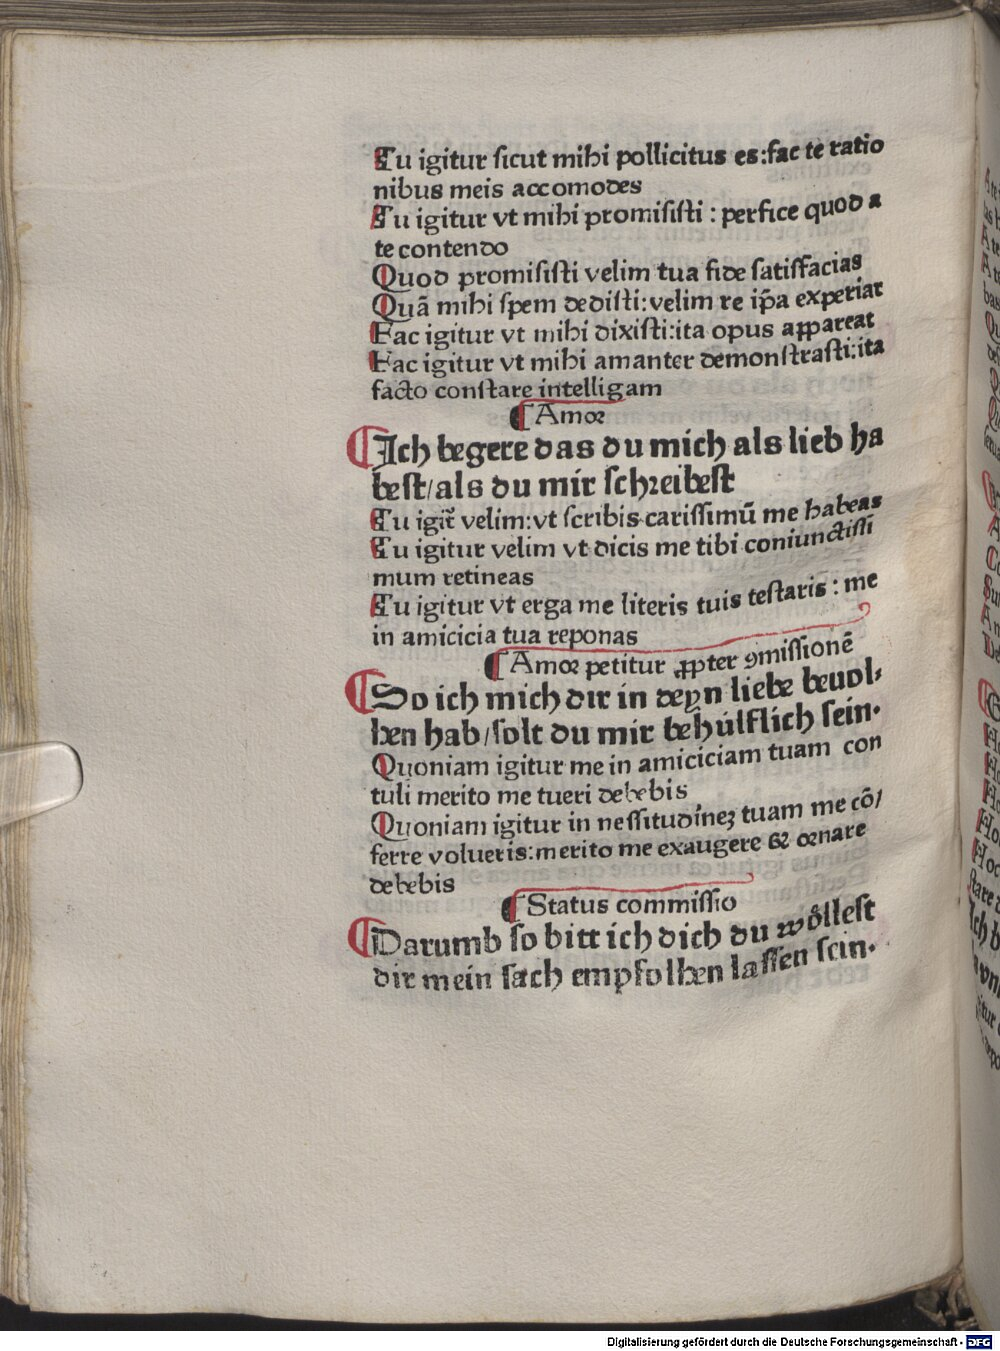 Tu igitur ſicut mihi pollicitus es:fac te ratio
nibus meis accomodes
Tu igitur vt mihi promiſiſti : perfice quod a
te contendo
Quod promiſiſti velim tua fide ſatiſfacias
Quã mihi ſpem dediſti:velim re ip̃a experiar
Fac igitur vt mihi dixiſti:ita opus appareat
Fac igitur vt mihi amanter demonſtraſti:ita
facto conſtare intelligam
¶ Amor
¶ Ich begere das du mich als lieb ha
beſt/als du mir ſchreibeſt
Tu igit̃ velim:vt ſcribis cariſſimũ me habeas
Tu igitur velim vt dicis me tibi coniunctiſſi
mum retineas
Tu igitur vt erga me literis tuis teſtaris : me
in amicicia tua reponas
¶ Amor petitur ꝓpter ꝯmiſſionẽ
¶ So ich mich dir in deyn liebe beuol⸗
hen hab/ſolt du mir behúlflich ſein.
Quoniam igitur me in amiciciam tuam con
tuli merito me tueri debebis
Quoniam igitur in neſſitudínez tuam me cõ/
ferre volueris:merito me exaugere & ornare
debebis
¶ Status commiſſio
¶ Darumb ſo bitt ich dich du woͤlleſt
dir mein ſach empfolhen laſſen ſein.
Digitalisierung gefördert durch die Deutsche Forschungsgemeinschaft - DFG